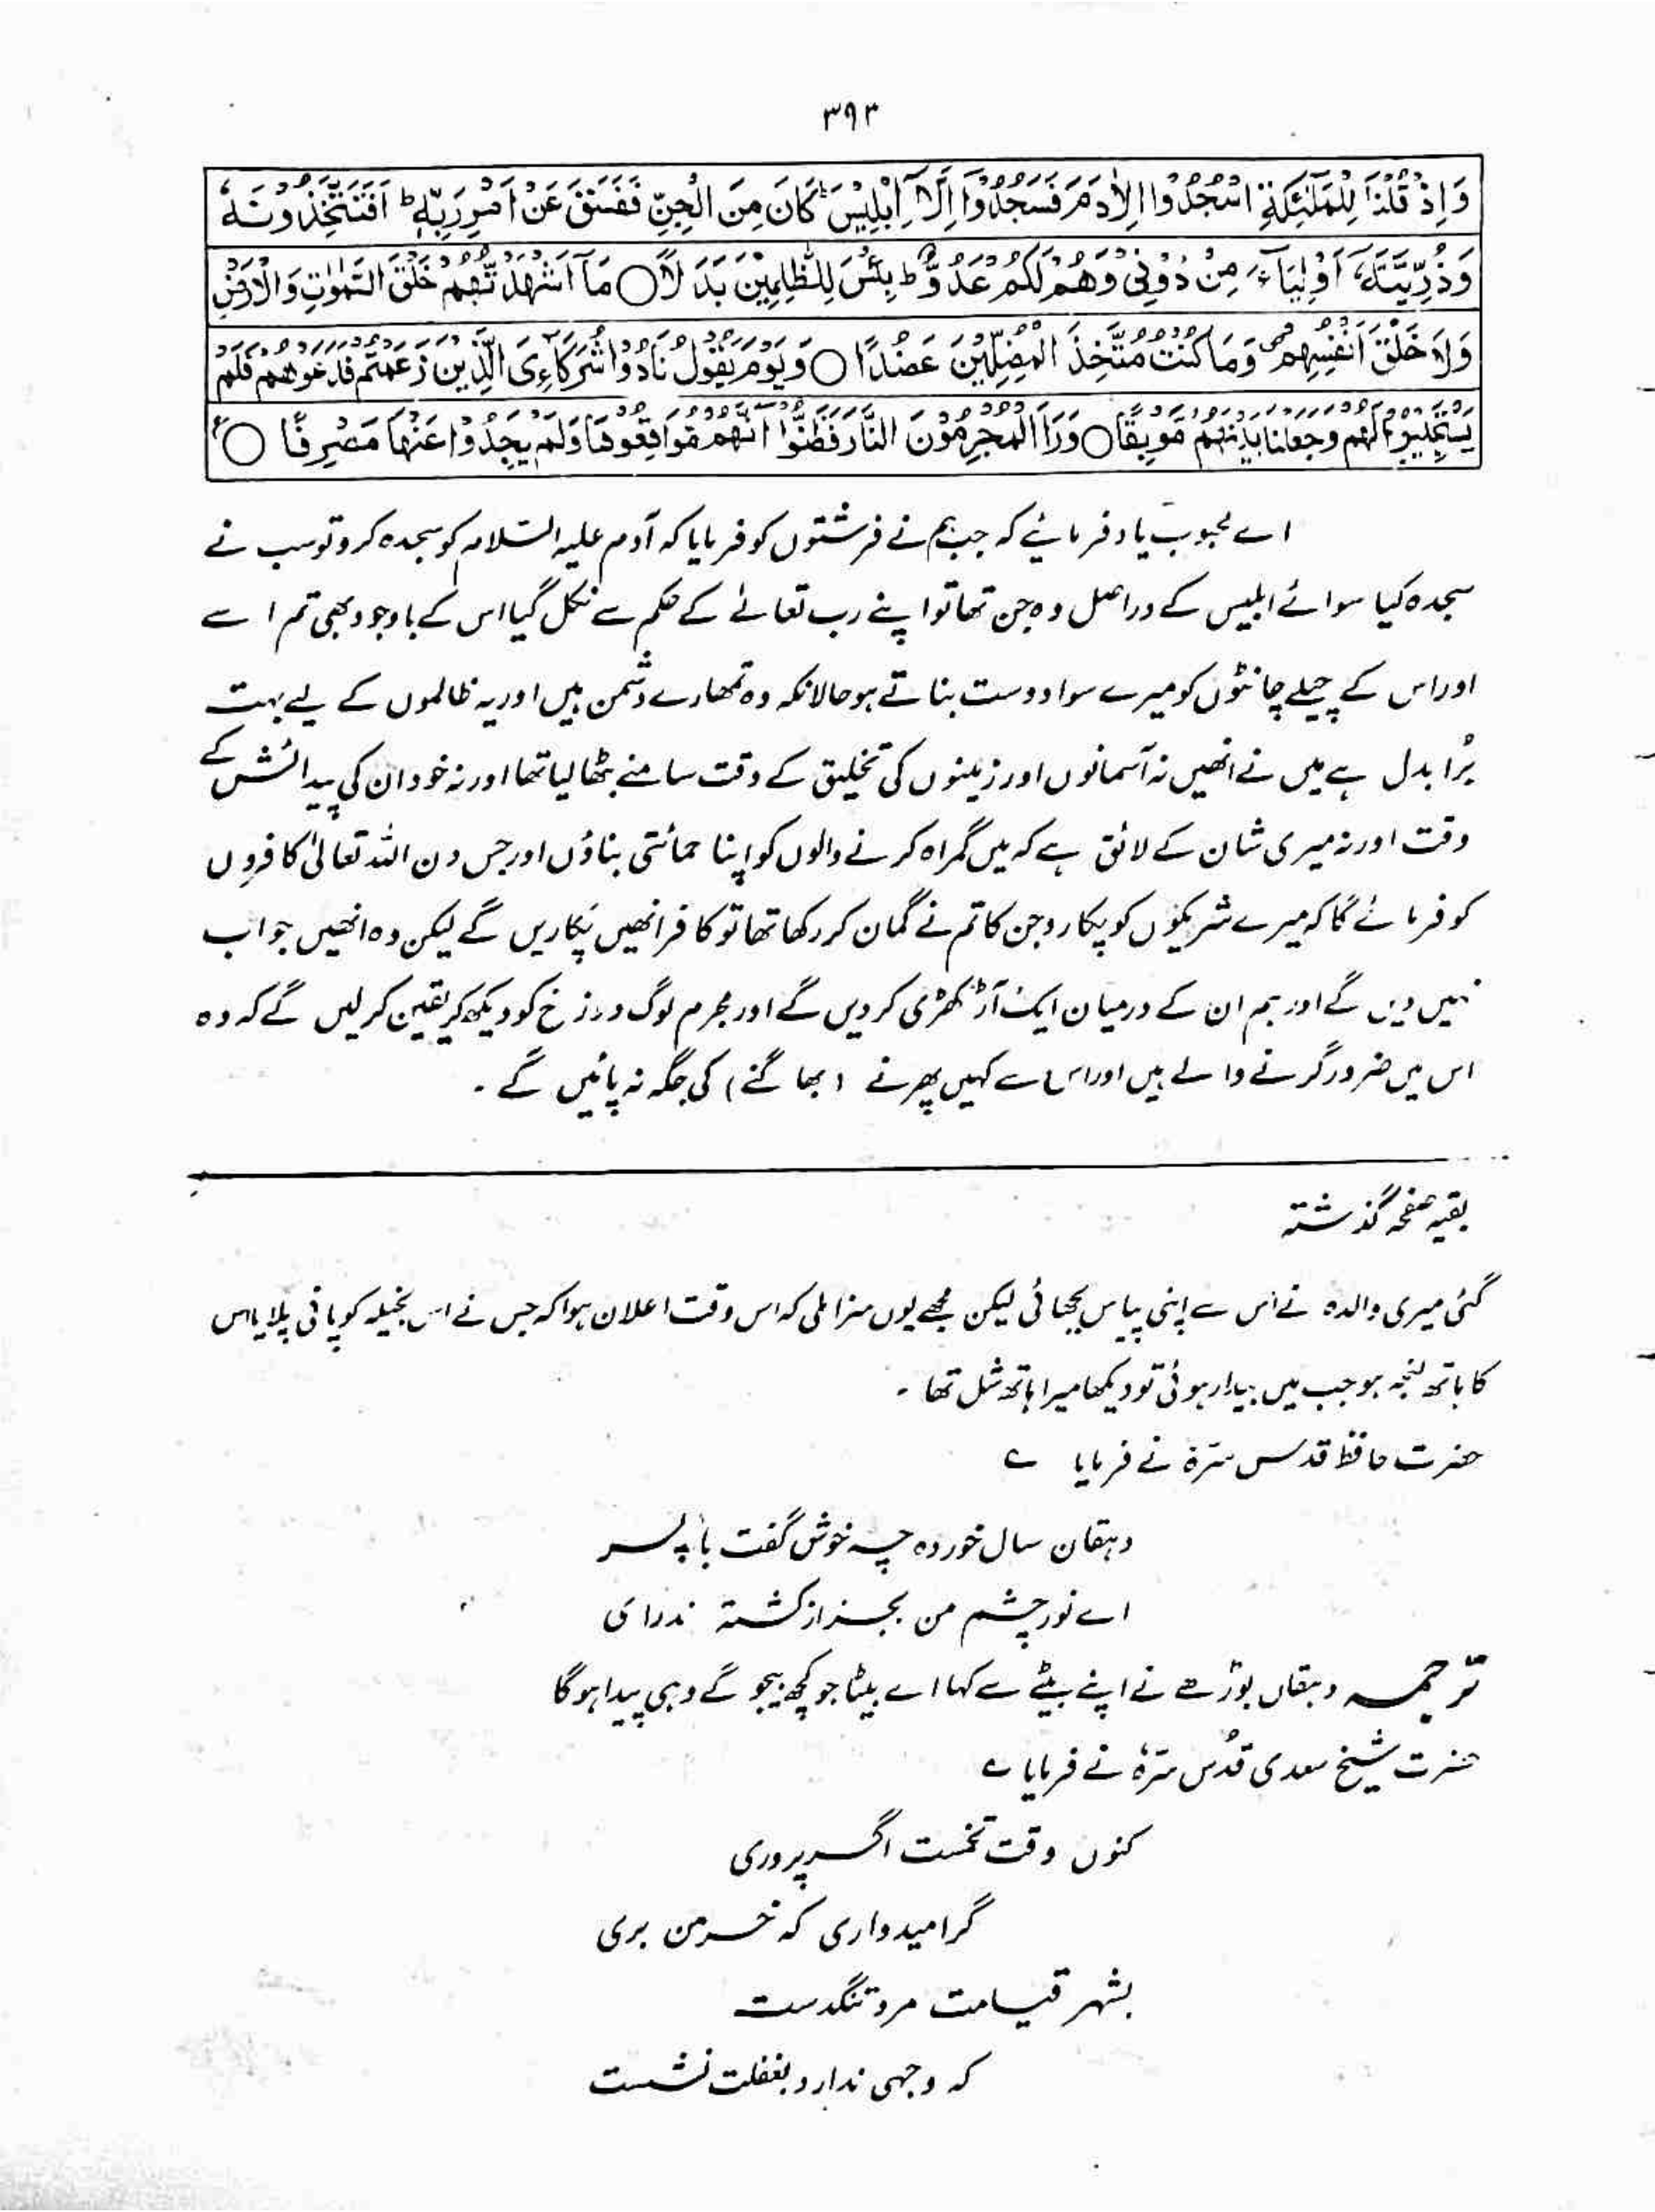 ۳۹۳
وَاِذْ قُلْنَا لِلْمَلٰٓئِكَةِ اسْجُدُوْا لِاٰدَمَ فَسَجَدُوْٓا اِلَّآ اِبْلِيْسَ ؕ كَانَ مِنَ الْجِنِّ فَفَسَقَ عَنْ اَمْرِ رَبِّهٖ ؕ اَفَتَتَّخِذُوْنَهٗ
وَذُرِّيَّتَهٗٓ اَوْلِيَآءَ مِنْ دُوْنِيْ وَهُمْ لَكُمْ عَدُوٌّ ؕ بِئْسَ لِلظّٰلِمِيْنَ بَدَلًا ○ مَآ اَشْهَدْتُّهُمْ خَلْقَ السَّمٰوٰتِ وَالْاَرْضِ
وَلَا خَلْقَ اَنْفُسِهِمْ ۪ وَمَا كُنْتُ مُتَّخِذَ الْمُضِلِّيْنَ عَضُدًا ○ وَيَوْمَ يَقُوْلُ نَادُوْا شُرَكَآءِيَ الَّذِيْنَ زَعَمْتُمْ فَدَعَوْهُمْ فَلَمْ
يَسْتَجِيْبُوْا لَهُمْ وَجَعَلْنَا بَيْنَهُمْ مَّوْبِقًا ○ وَرَاَ الْمُجْرِمُوْنَ النَّارَ فَظَنُّوْٓا اَنَّهُمْ مُّوَاقِعُوْهَا وَلَمْ يَجِدُوْا عَنْهَا مَصْرِفًا ○ ع
اے محبوب یاد فرمائیے کہ جب ہم نے فرشتوں کو فرمایا کہ آدم علیہ السّلام کو سجدہ کرو تو سب نے
سجدہ کیا سوائے ابلیس کے دراصل وہ جن تھا تو اپنے رب تعالےٰ کے حکم سے نکل گیا اس کے باوجود بھی تم اسے
اور اس کے چیلے چانٹوں کو میرے سوا دوست بناتے ہو حالانکہ وہ تمھارے دشمن ہیں اور یہ ظالموں کے لیے بہت
بُرا بدل ہے میں نے انھیں نہ آسمانوں اور زمینوں کی تخلیق کے وقت سامنے بٹھا لیا تھا اور نہ خود ان کی پیدائش کے
وقت اور نہ میری شان کے لائق ہے کہ میں گمراہ کرنے والوں کو اپنا حمائتی بناؤں اور جس دن اللہ تعالیٰ کافروں
کو فرمائے گا کہ میرے شریکوں کو پکارو جن کا تم نے گمان کر رکھا تھا تو کافر انھیں پکاریں گے لیکن وہ انھیں جواب
نہیں دیں گے اور ہم ان کے درمیان ایک آڑ کھڑی کر دیں گے اور مجرم لوگ دوزخ کو دیکھ کر یقین کر لیں گے کہ وہ
اس میں ضرور گرنے والے ہیں اور اس سے کہیں پھرنے (بھاگنے) کی جگہ نہ پائیں گے ۔
بقیہ صفحہ گذشتہ
گئی میری والدہ نے اس سے اپنی پیاس بجھائی لیکن مجھے یوں سزا ملی کہ اس وقت اعلان ہوا کہ جس نے اس بخیلہ کو پانی پلایا اس
کا ہاتھ لنجہ ہو جب میں بیدار ہوئی تو دیکھا میرا ہاتھ شل تھا ۔
حضرت حافظ قدس سرّہ نے فرمایا ؎
دہقان سال خوردہ چہ خوش گفت با پسر
اے نور چشم من بجز از کشتہ ندروی
ترجمہ دہقاں بوڑھے نے اپنے بیٹے سے کہا اے بیٹا جو کچھ بیجو گے وہی پیدا ہوگا
حضرت شیخ سعدی قُدس سرّہٗ نے فرمایا ؎
کنوں وقت تخمست اگر پروری
گر امیدواری کہ خرمن بری
بشہر قیامت مرو تنگدست
کہ وجہی ندارد بغفلت نشست